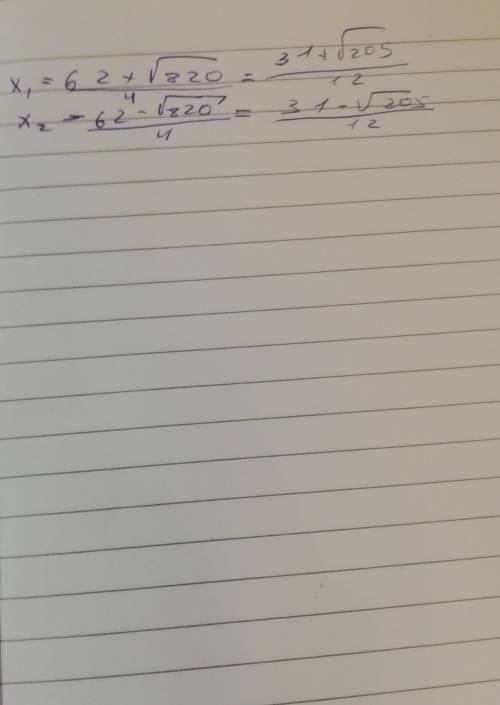 x₁ = (62 + √820)/4 = (31 + √205)/12
x₂ = (62 - √820)/4 = (31 - √205)/12